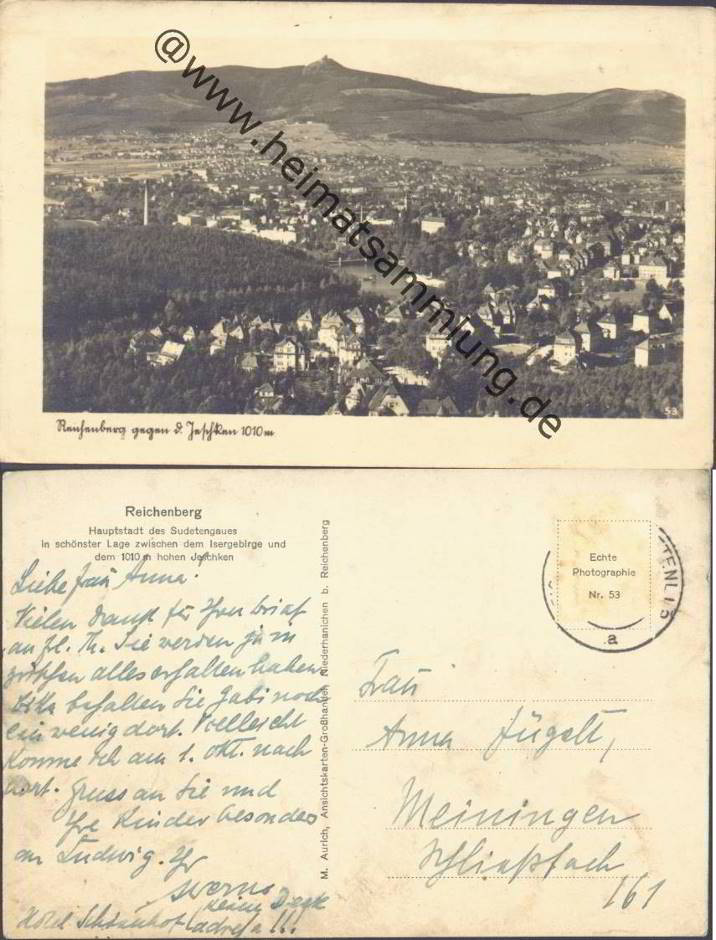 @www.heimatsammlung.de
53
Reichenberg gegen d. Jeschken 1010m
Reichenberg
Hauptstadt des Sudetengaues
In schönster Lage zwischen dem Isergebirge und
dem 1010 m hohen Jeschken
Liebe Frau Anna!
Vielen Dank für Ihren Brief
an Sie werden ja in
alles erhalten haben.
Bitte behalten Sie Gabi noch
ein wenig dort. Vielleicht
komme ich am 1. Okt. nach
dort. Gruss an Sie und
Ihre Kinder besonders
an Ludwig. Ihr
keine
Hotel Schönhof (adresa!!!
M. Aurich, Ansichtskarten-Großhandel, Niederhanichen b. Reichenberg
Echte
Photographie
Nr. 53
a
Frau
Anna
Meiningen
Schließfach
161